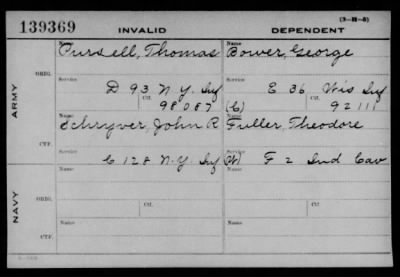 (3-H-8)
139369 INVALID DEPENDENT
Name Name
Pursell, Thomas Bower, George
ORIG.
Service Service
D 93 N.Y. Inf E 36 Wis Inf
Ctf. Ctf.
98087 (C) 92111
ARMY
Name Name
Schryver, John R Fuller, Theodore
CTF.
Service Service
C 128 N.Y. Inf (W) F 2 Ind Cav
Name Name
ORIG.
Service Service
Ctf. Ctf.
NAVY
Name Name
CTF.
Service Service